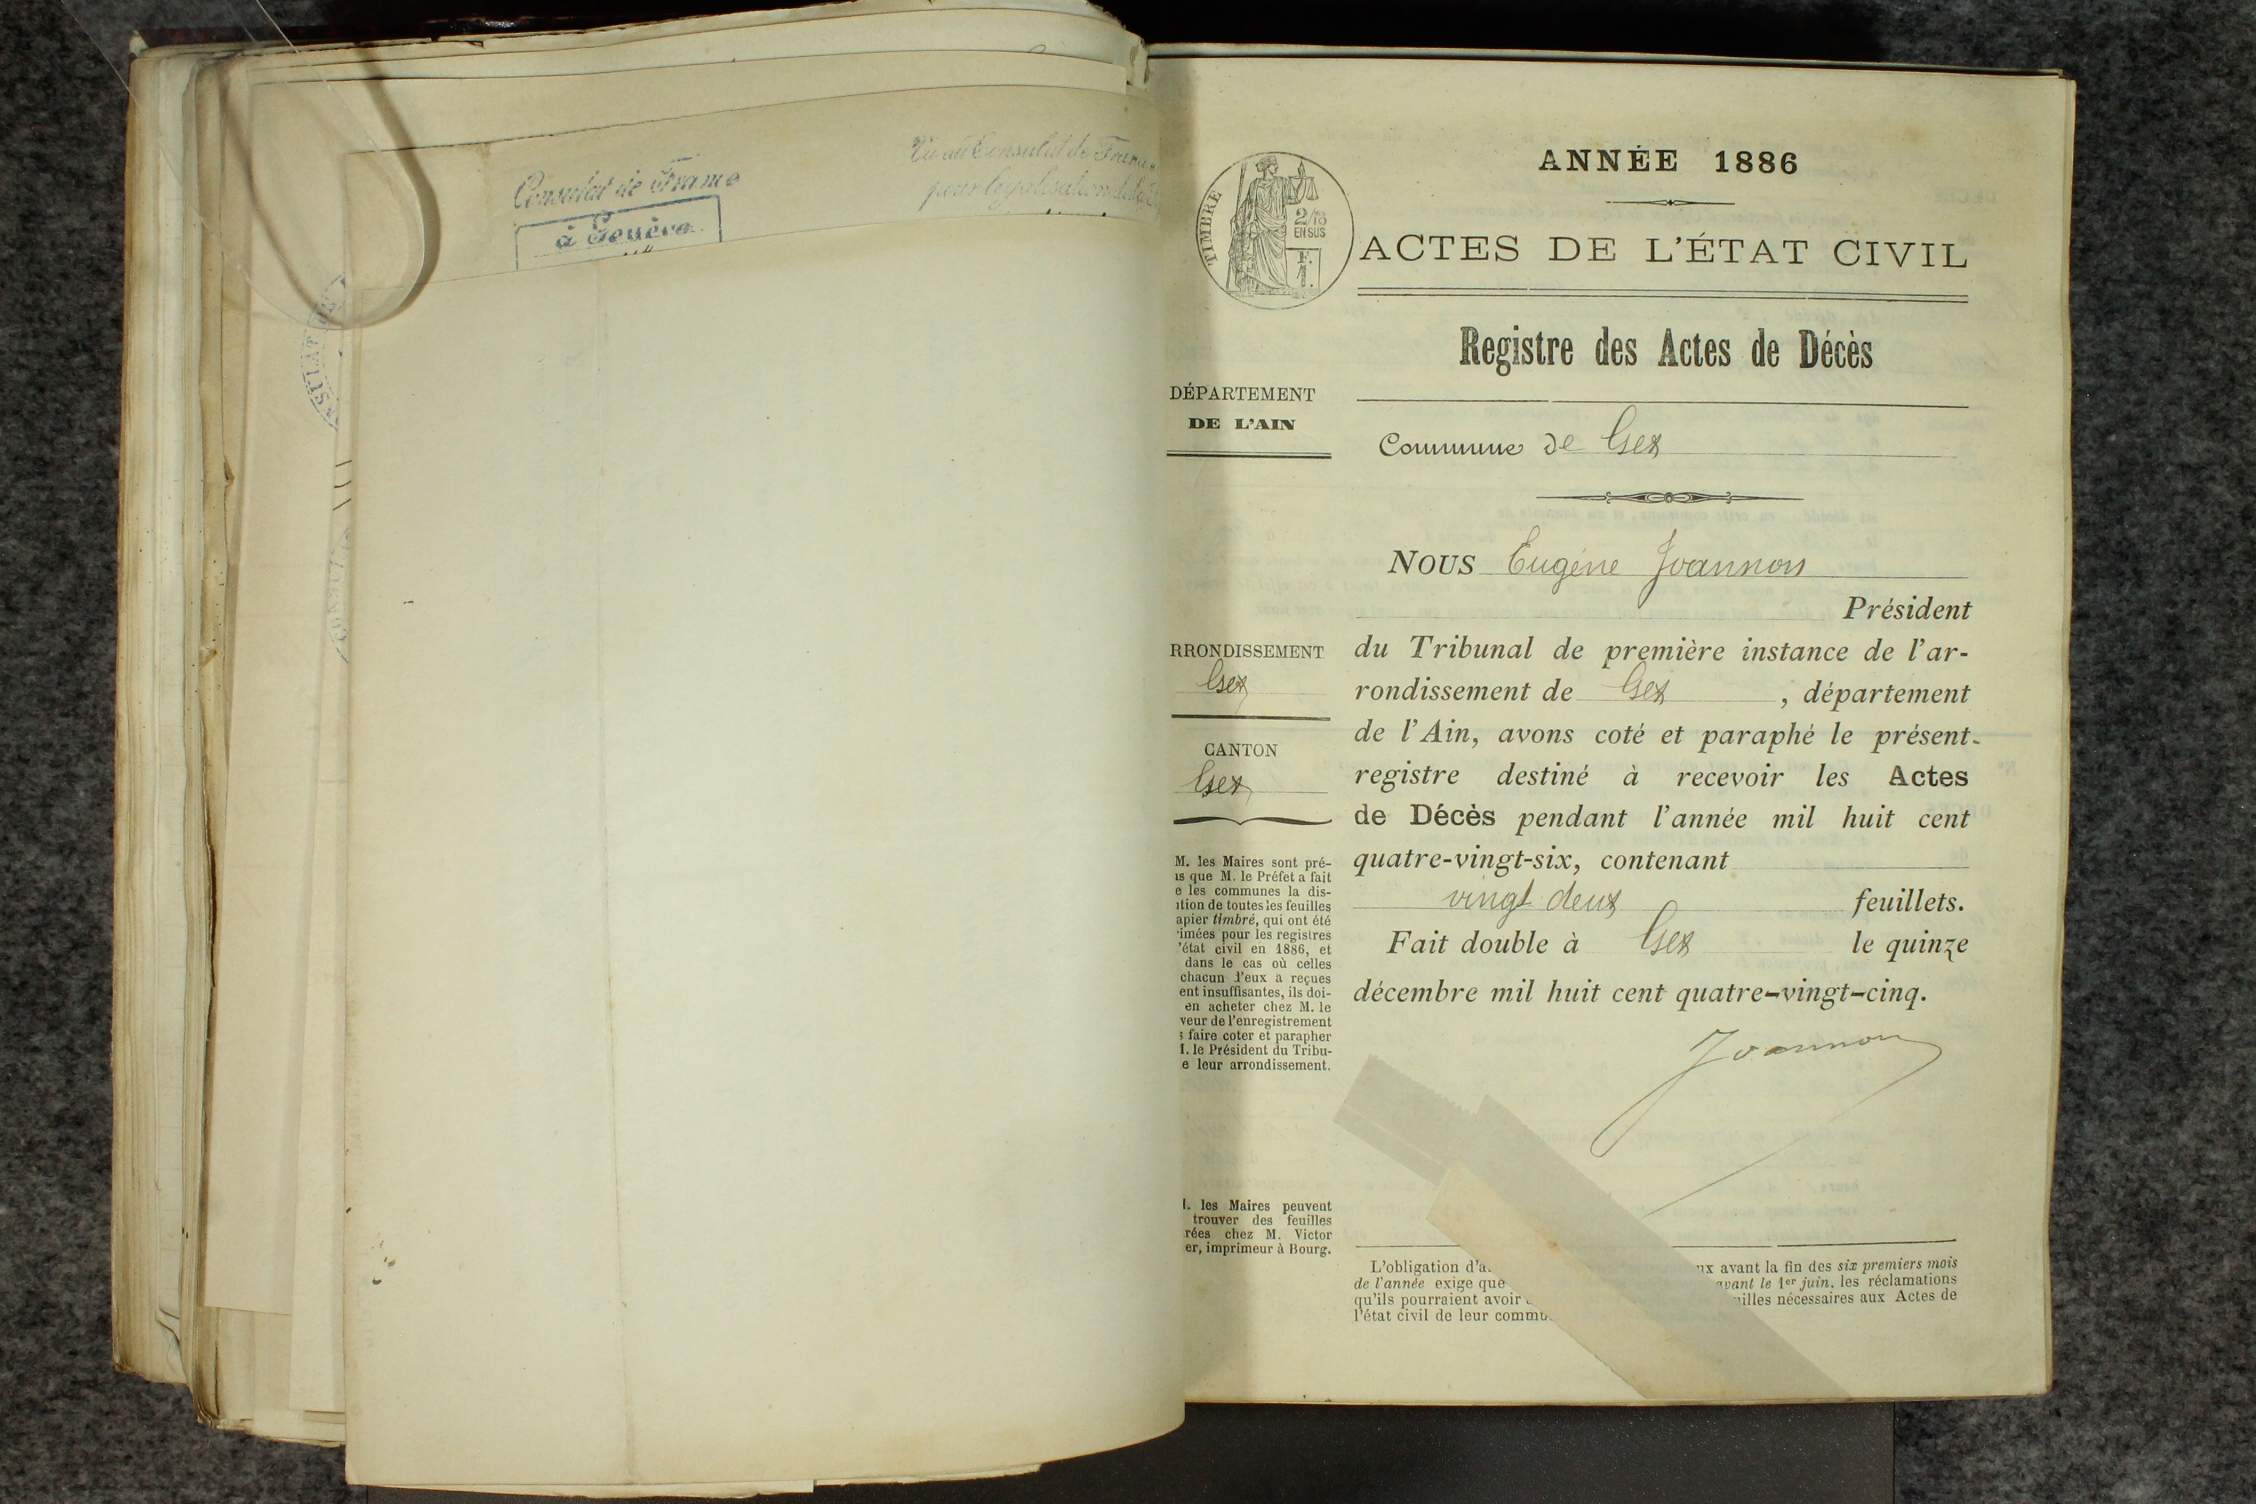 Consulat de France
à Genève
Vu au Consulat de France
pour légalisation de la
TIMBRE
2/10
EN SUS
F.
1.
ANNÉE 1886
ACTES DE L'ÉTAT CIVIL
Registre des Actes de Décès
DÉPARTEMENT
DE L'AIN
Commune de Gex
NOUS Eugène Joannon
Président
du Tribunal de première instance de l'ar-
rondissement de Gex, département
de l'Ain, avons coté et paraphé le présent
registre destiné à recevoir les Actes
de Décès pendant l'année mil huit cent
quatre-vingt-six, contenant
vingt deux feuillets.
Fait double à Gex le quinze
décembre mil huit cent quatre-vingt-cinq.
Joannon
RRONDISSEMENT
Gex
CANTON
Gex
M. les Maires sont pré-
us que M. le Préfet a fait
e les communes la dis-
ution de toutes les feuilles
apier timbré, qui ont été
imées pour les registres
'état civil en 1886, et
dans le cas où celles
chacun d'eux a reçues
ent insuffisantes, ils doi-
en acheter chez M. le
veur de l'enregistrement
s faire coter et parapher
M. le Président du Tribu-
e leur arrondissement.
M. les Maires peuvent
trouver des feuilles
rées chez M. Victor
er, imprimeur à Bourg.
L'obligation d'a ux avant la fin des six premiers mois
de l'année exige que avant le 1er juin, les réclamations
qu'ils pourraient avoir uilles nécessaires aux Actes de
l'état civil de leur commu